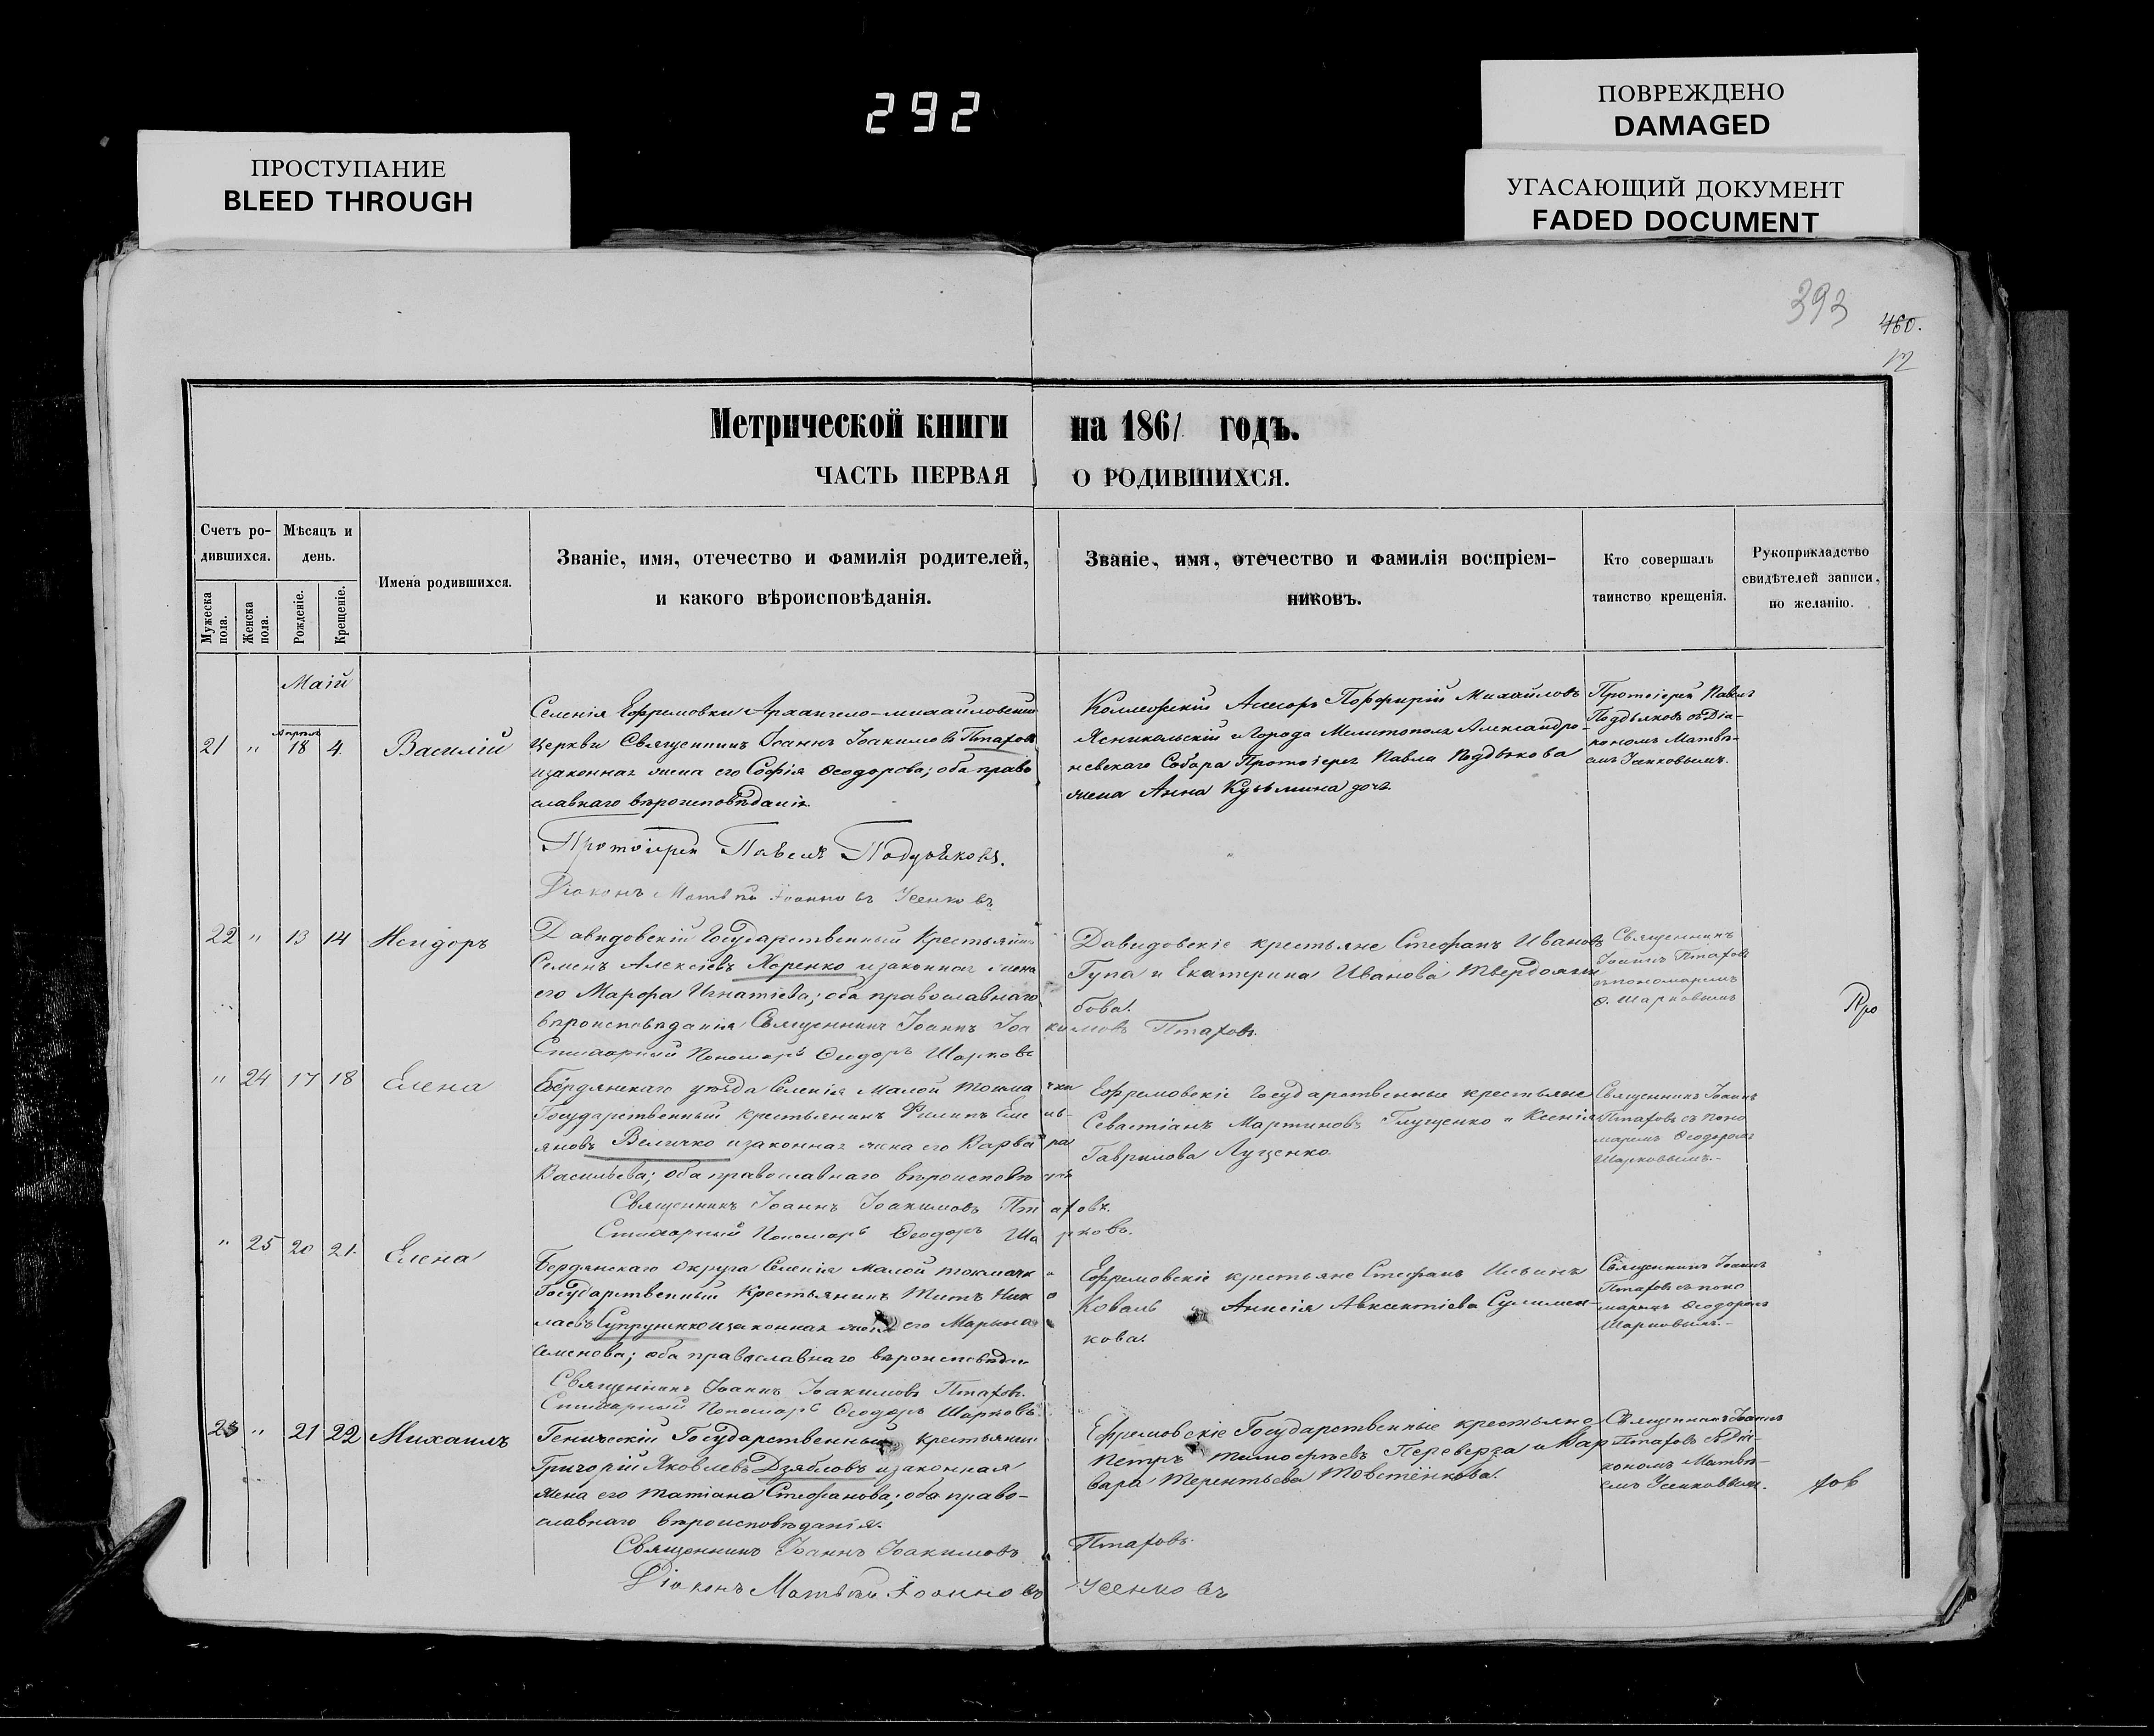 292
ПОВРЕЖДЕНО
DAMAGED
ПРОСТУПАНИЕ
BLEED THROUGH
УГАСАЮЩИЙ ДОКУМЕНТ
FADED DOCUMENT
393
460.
Метрической книги на 1861 годъ.
ЧАСТЬ ПЕРВАЯ О РОДИВШИХСЯ.
Счетъ ро-
дившихся.
Мужеска пола.
Женска пола.
Мѣсяцъ и
день.
Рожденіе.
Крещеніе.
Имена родившихся.
Званіе, имя, отечество и фамилія родителей,
и какого вѣроисповѣданія.
Званіе, имя, отечество и фамилія воспріем-
никовъ.
Кто совершалъ
таинство крещенія.
Рукоприкладство
свидѣтелей записи,
по желанію.
Маій
Апрель
21 " 18 4 Василій
Селенія Ефремовки Архангело-михайловской
церкви Священникъ Іоаннъ Іоакимовъ Птаховъ
и законная жена его Софія Ѳеодорова; оба право
славнаго вѣроисповѣданія.
Коллежскій Асесоръ Порфирій Михайловъ
Ясникольскій и города Мелитополя Александро-
невскаго Собора Протоіерея Павла Подъякова
жена Анна Кузьмина дочь.
Протоіерей Павелъ
Подъяковъ съ Діа-
кономъ Матвѣ-
емъ Усенковымъ.
Протоіерей Павелъ Подъяковъ.
Діаконъ Матвѣй Іоанновъ Усенковъ
22 " 13 14 Исидоръ
Давидовскій Государственный Крестьянинъ
Семенъ Алексѣевъ Яренко и законная жена
его Марфа Игнатіева; оба православнаго
вѣроисповѣданія Священникъ Іоаннъ Іоакимовъ Птаховъ.
Стихарный Пономарь Ѳеодоръ Шарковъ
Давидовскіе крестьяне Стефанъ Ивановъ
Гупа и Екатерина Иванова Твердохли
бова.
Священникъ
Іоаннъ Птаховъ
съ пономаремъ
Ѳ. Шарковымъ
Про
" 24 17 18 Елена
Бердянскаго уѣзда Селенія Малой Токмачки
Государственный крестьянинъ Филипъ Емель-
яновъ Величко и законная жена его Варвара
Васильева; оба православнаго вѣроисповѣ
Священникъ Іоаннъ Іоакимовъ Птаховъ.
Стихарный Пономарь Ѳеодоръ Шарковъ.
Ефремовскіе Государственные крестьяне
Севастіанъ Мартиновъ Глущенко и Ксенія
Гаврилова Луценко
Священникъ Іоаннъ
Птаховъ съ поно
маремъ Ѳеодоромъ
Шарковымъ.
" 25 20 21. Елена
Бердянскаго округа Селенія Малой токмачк
Государственный Крестьянинъ Титъ Нико
лаевъ Супруненко и законная жена его Марина
Семенова; оба православнаго вѣроисповѣдан
Священникъ Іоаннъ Іоакимовъ Птаховъ.
Стихарный Пономарь Ѳеодоръ Шарковъ.
Ефремовскіе крестьяне Стефанъ Ильинъ
Коваль и Анисія Авксентіева Сулимен-
кова.
Священникъ Іоаннъ
Птаховъ съ поно
маремъ Ѳеодоромъ
Шарковымъ.
23 " 21 22 Михаилъ
Геническій Государственный крестьянин
Григорій Яковлевъ Дзябловъ и законная
жена его Татіана Стефанова; оба право-
славнаго вѣроисповѣданія.
Ефремовскіе Государственные крестьяне
Петръ Тимофѣевъ Переверза и Вар
вара Терентьева Товстенкова.
Священникъ Іоаннъ
Птаховъ съ Діа-
кономъ Матвѣ-
емъ Усенковым.
Священникъ Іоаннъ Іоакимовъ Птаховъ.
Діаконъ Матвѣй Іоанновъ Усенковъ